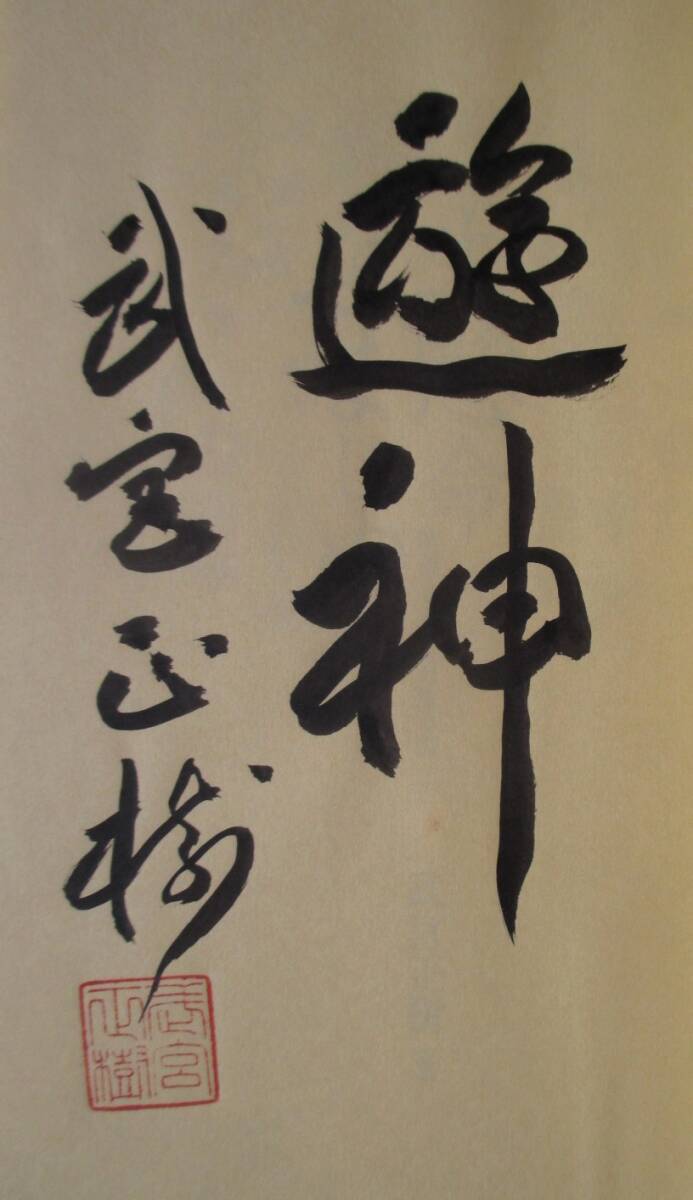 遊神
武宮正樹
武宮
正樹